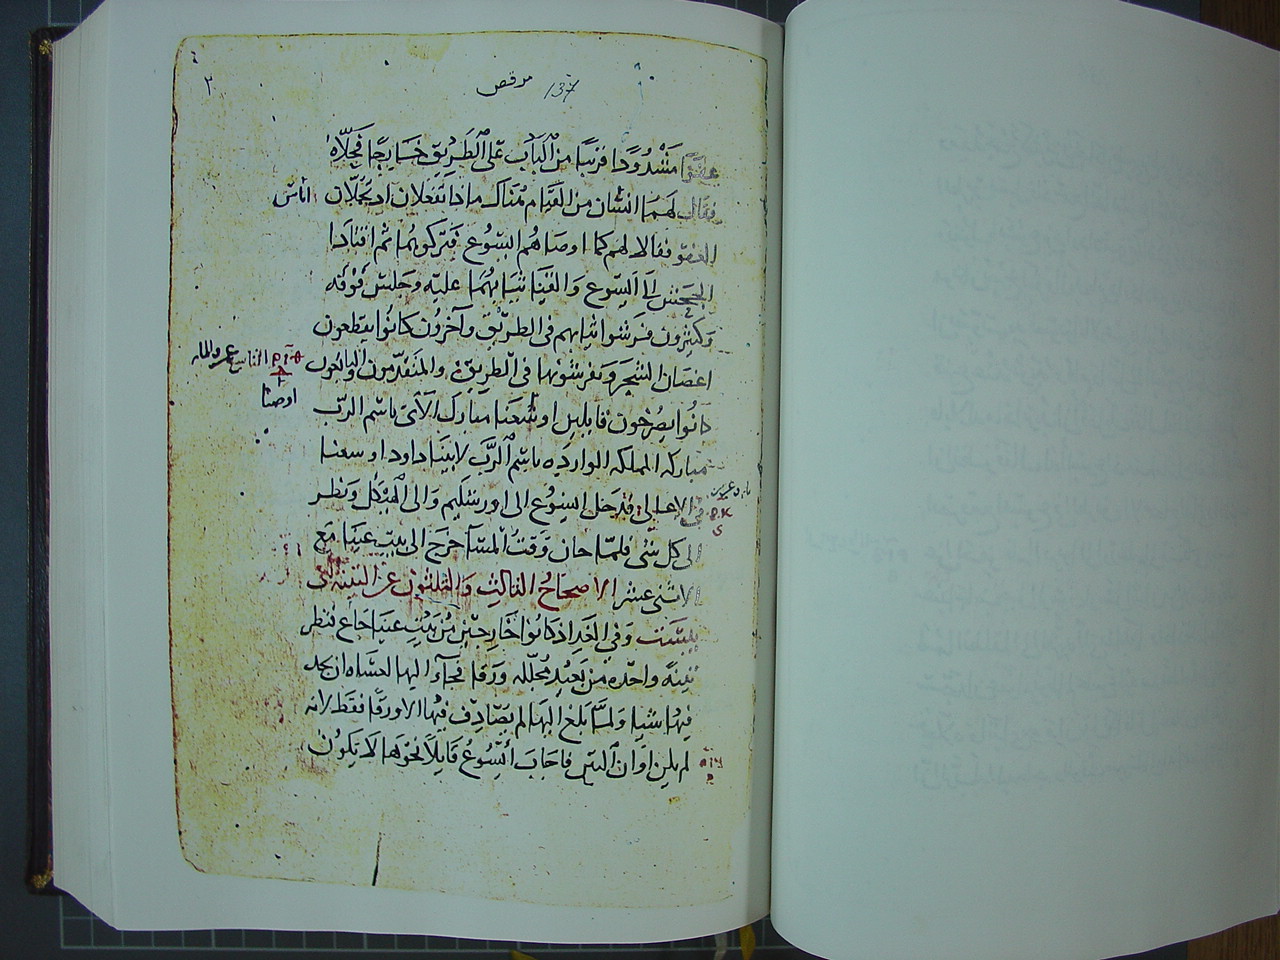 ٣
مرقص 137
عفوًا مشدودًا قريبًا من الباب على الطريق خارجًا فحلّاه
فقال لهما انسان من القيام هناك ماذا تفعلان اذ تحلّان
اناس
العفو فقالا لهم كما اوصاهما ايسوع فتركوهما ثم اقتادا
الجحش الى ايسوع والقيا ثيابهما عليه وجلس فوقه
وكثيرون فرشوا ثيابهم في الطريق وآخرون كانوا يقطعون
اغصان الشجر ويفرشونها في الطريق والمتقدّمون والتابعون
اوصنا
كانوا يصرخون قايلين اوشعنا مبارك الآتى باسم الربّ
مباركه المملكه الوارده باسم الربّ لابينا داود اوشعنا
في الاعالي فدخل ايسوع الى اورشليم والى الهيكل ونظر
الى كل شى فلمّا حان وقت المسآ خرج الى بيت عنيا مع
الاثنى عشر الاصحاح الثالث والثلثون عن التينه التى
يبست وفي الغد اذ كانوا خارجين من بيت عنيا جاع فنظر
تينةً واحده من بعيد مجلّله ورقا فجآء اليها لعساه ان يجد
فيها شيا ولمّا بلغ اليها لم يصادف فيها الا ورقا فقط لانه
لم يكن اوان التين فاجاب أيسوع قايلًا نحوها لا يكون